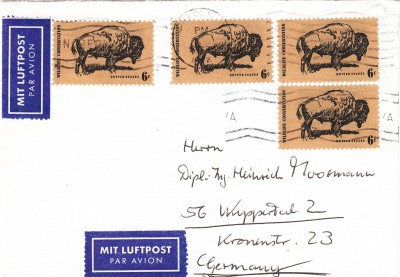 MIT LUFTPOST
PAR AVION
N
PM
WILDLIFE CONSERVATION
UNITED STATES
6c
WILDLIFE CONSERVATION
UNITED STATES
6c
WILDLIFE CONSERVATION
UNITED STATES
6c
WILDLIFE CONSERVATION
UNITED STATES
6c
Herrn
Dipl.-Ing. Heinrich Moosmann
56 Wuppertal 2
Kronenstr. 23
Germany
MIT LUFTPOST
PAR AVION